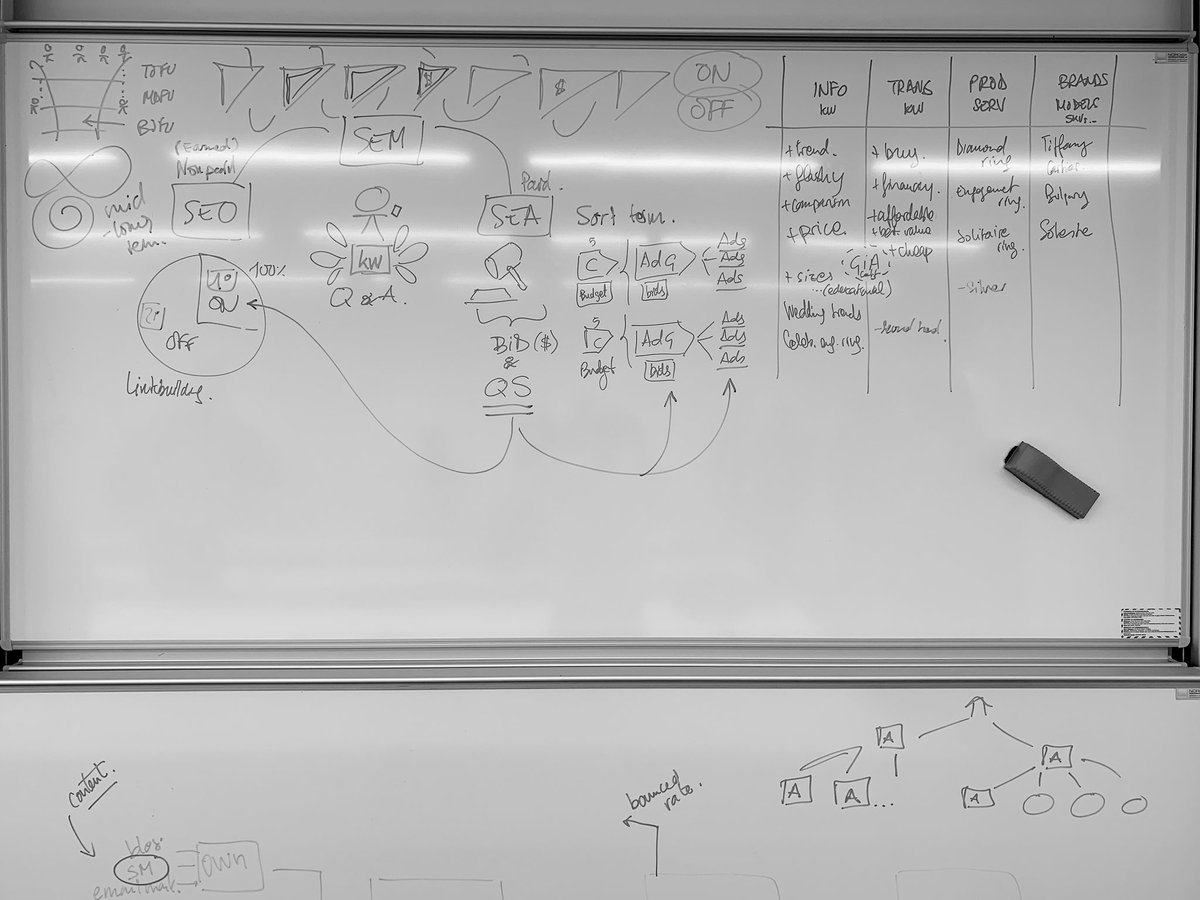 TOFU
MOFU
BOFU
(Earned)
SEO
mid
-long
term.
100%
1º
ON
OFF
Linkbuilding.
SEM
kw
Q & A.
Paid.
SEA
Sort term.
BiD ($)
&
QS
$
$
5
C
Budget
AdG
bids
Ads
Ads
Ads
5
C
Budget
AdG
bids
Ads
Ads
Ads
ON
OFF
INFO
kw
+ trend.
+ flashy
+ comparison
+ price.
+ sizes
...(educational)
Wedding trends
Celeb. eng. ring.
TRANS
kw
+ buy.
+ financing.
+ affordable
+ best value
+ cheap
GiA
cert
- second hand.
PROD
SERV
Diamond
ring
engagement
ring.
Solitaire
ring.
- silver
BRANDS
MODELS
SKUs...
Tiffany
Cartier
Bulgary
content.
blog.
SM
email mark.
own
bounced
rate.
A
A
A...
A
A